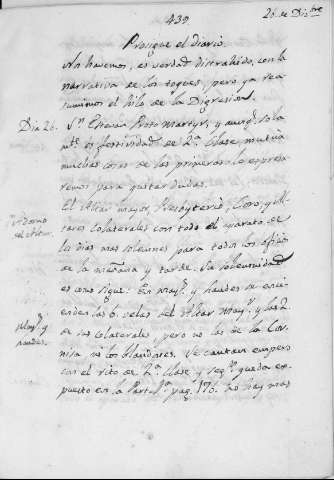 439
20 de Dizbre
Prosigue el diario.
Nos havemos, es verdad distrahido, con la
narrativa de los toques, pero ya rea-
sumimos el hilo de la Digresion.
Dia 26. Sn. Estevan Proto Martyr, y aunqe. solo
es festividad de 2ª. Clase, mutua
muchas cosas de las primeras lo expresa-
remos para quitar dudas.
Adorno del Altar.
El Altar mayor, Presbyterio, Coro, y Al-
tares colaterales con todo el aparato de
los dias mas solemnes para todos los oficios
de la mañana y tarde. Su solemnidad
es como sigue: En Mayts. y Laudes se enci-
Mayts. y Laudes.
enden las 6. velas del Altar Mayr. y las 2
de sus colaterales, pero no las de la Cor-
nisa ni los Blandones. Se cantan empero
con el rito de 2ª. Clase y segn. queda ex-
puesto en la Parte 1ª. pag. 176. no hay mas